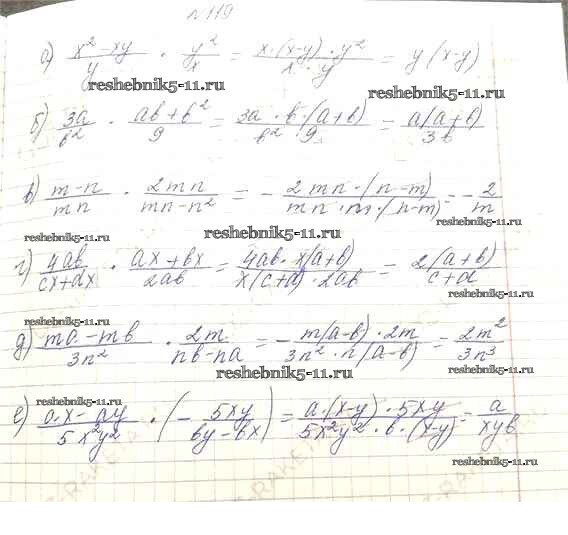 №119
а) (x² - xy)/y · y²/x = (x·(x-y)·y²)/(x·y) = y(x-y)
reshebnik5-11.ru reshebnik5-11.ru
б) 3a/b² · (ab+b²)/9 = (3a·b·(a+b))/(b²·9) = a(a+b)/3b
в) (m-n)/mn · 2mn/(mn-n²) = - (2mn·(n-m))/(mn·m·(n-m)) = - 2/m
reshebnik5-11.ru reshebnik5-11.ru reshebnik5-11.ru
г) 4ab/(cx+dx) · (ax+bx)/2ab = (4ab·x(a+b))/(x(c+d)·2ab) = 2(a+b)/(c+d)
reshebnik5-11.ru reshebnik5-11.ru
д) (ma-mb)/3n² · 2m/(nb-na) = - (m(a-b)·2m)/(3n²·n(a-b)) = - 2m²/3n³
reshebnik5-11.ru reshebnik5-11.ru reshebnik5-11.ru
е) (ax-ay)/5x²y² · (- 5xy/(by-bx)) = (a·(x-y)·5xy)/(5x²y²·b·(x-y)) = a/xyb
reshebnik5-11.ru